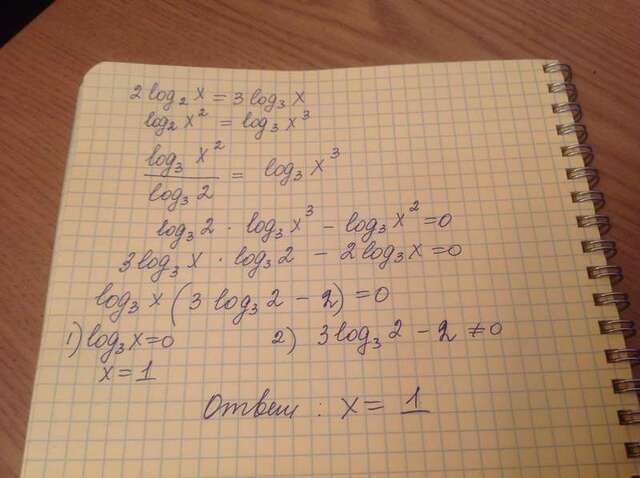 2 log₂ x = 3 log₃ x
log₂ x² = log₃ x³
log₃ x² / log₃ 2 = log₃ x³
log₃ 2 · log₃ x³ − log₃ x² = 0
3 log₃ x · log₃ 2 − 2 log₃ x = 0
log₃ x (3 log₃ 2 − 2) = 0
1) log₃ x = 0 2) 3 log₃ 2 − 2 ≠ 0
x = 1
Ответ: x = 1